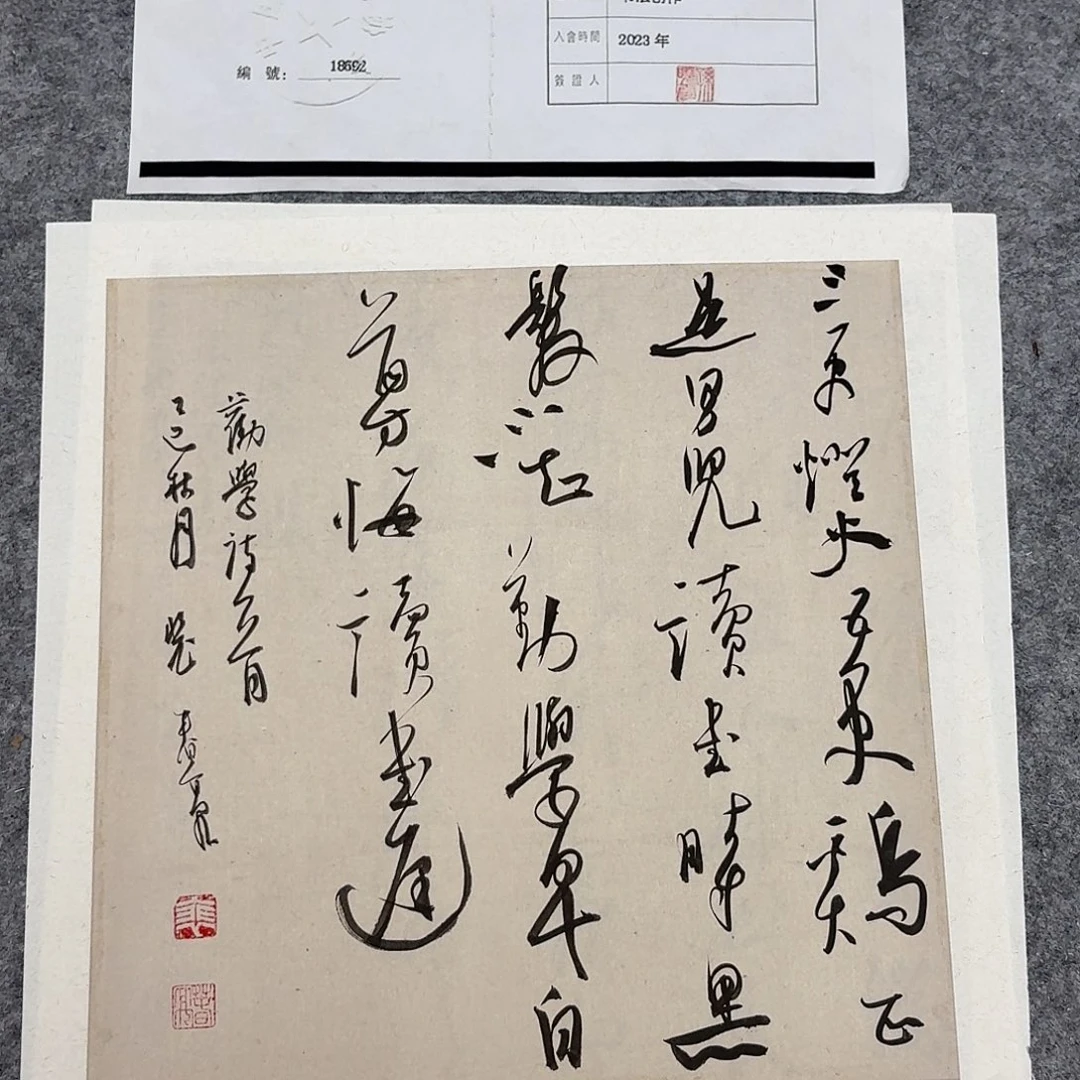 編 號: 18692
入會時間 2023 年
簽 證 人
三更燈火五更鷄正
是男兒讀書時黑
髮不知勤學早白
首方悔讀書遲
勸學詩一首
乙巳秋月